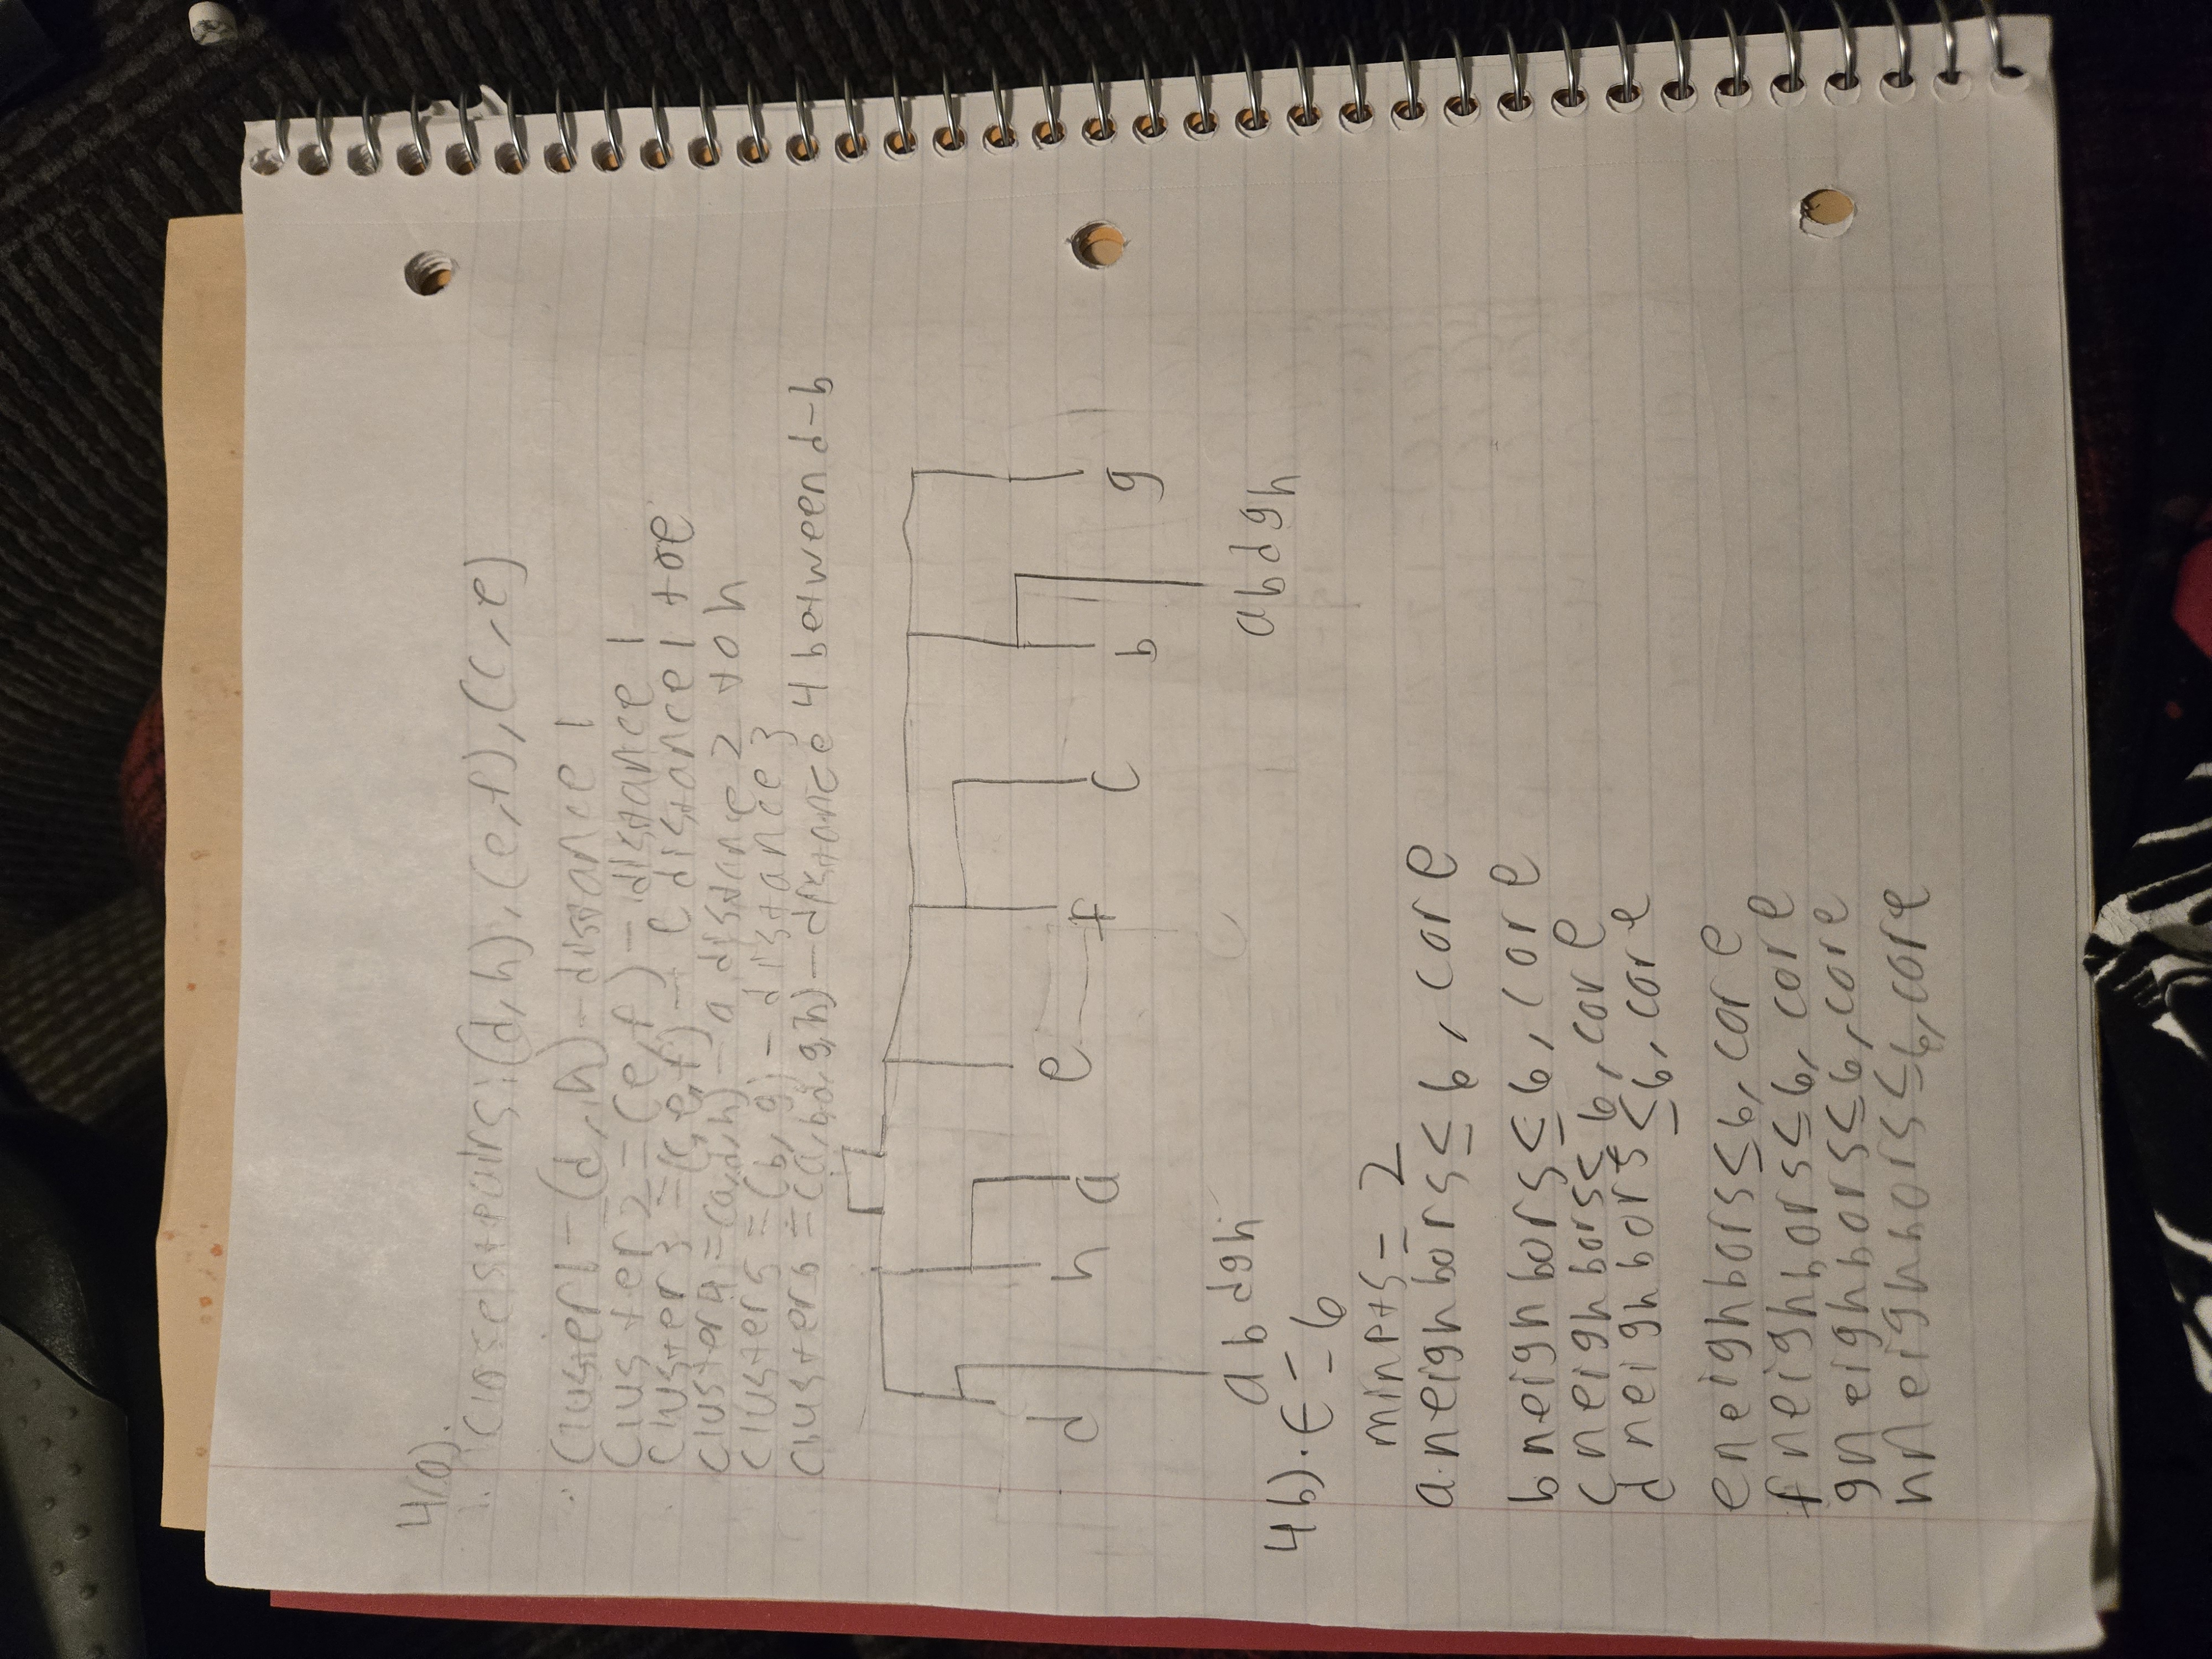 4(a).
1. closest pairs: (d,h), (e,f), (c,e)
cluster 1 - (d,h) - distance 1
cluster 2 = (e,f) - distance 1
cluster 3 = (c,e,f) - c distance 1 to e
cluster 4 = (a,d,h) - a distance 2 to h
cluster 5 = (b,g) - distance 3
cluster 6 = (a,b,d,g,h) - distance 4 between d-b
d h a e f c b g
abdgh abdgh
4b). ε = 6
minpts = 2
a neighbors ≤ 6, core
b neighbors ≤ 6, core
c neighbors ≤ 6, core
d neighbors ≤ 6, core
e neighbors ≤ 6, core
f neighbors ≤ 6, core
g neighbors ≤ 6, core
h neighbors ≤ 6, core